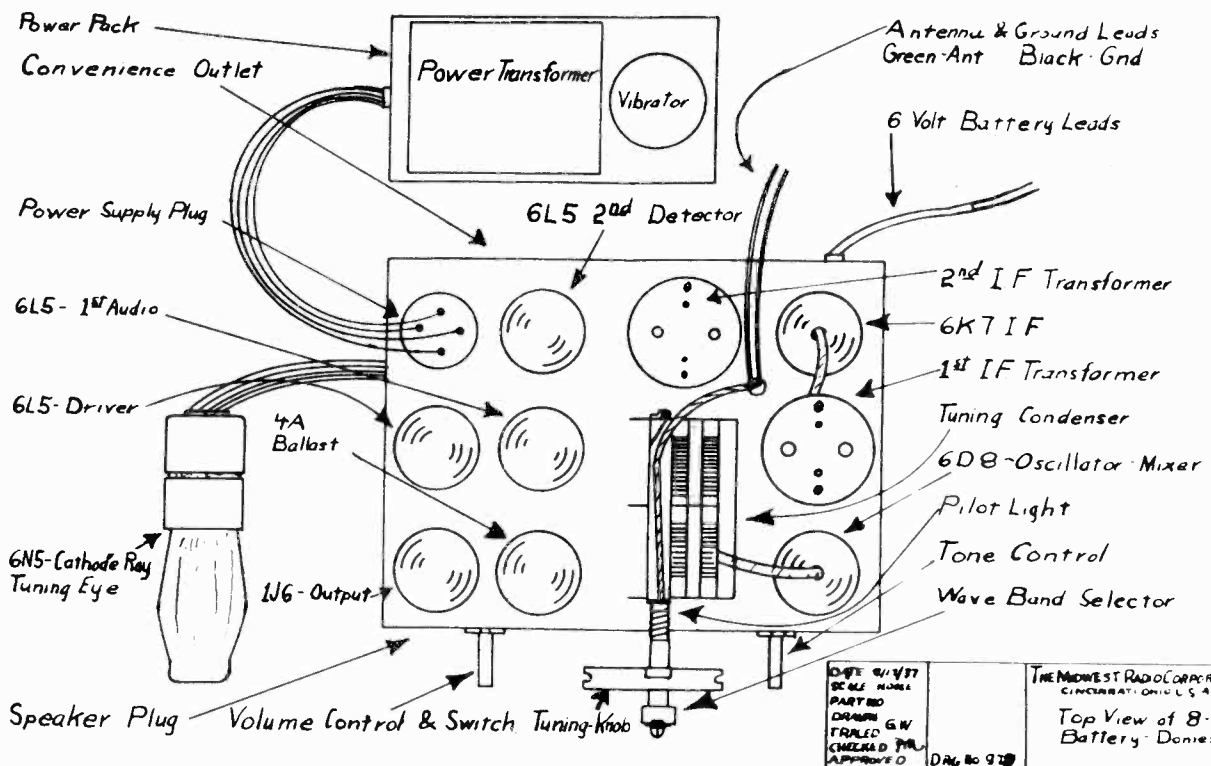 Power Pack
Convenience Outlet
Power Transformer
Vibrator
Antenna & Ground Leads
Green-Ant Black-Gnd
6 Volt Battery Leads
Power Supply Plug
6L5 2nd Detector
2nd IF Transformer
6L5-1st Audio
6K7 IF
1st IF Transformer
6L5-Driver
4A
Ballast
Tuning Condenser
6D8-Oscillator-Mixer
Pilot Light
6N5-Cathode Ray
Tuning Eye
1J6-Output
Tone Control
Wave Band Selector
Speaker Plug
Volume Control & Switch
Tuning-Knob
DATE
SCALE NONE
PART NO
DRAWN
TRACED G.W
CHECKED
APPROVED
DRG NO
THE MIDWEST RADIO CORPOR
CINCINNATI OHIO U S A
Top View of 8-
Battery-Domes